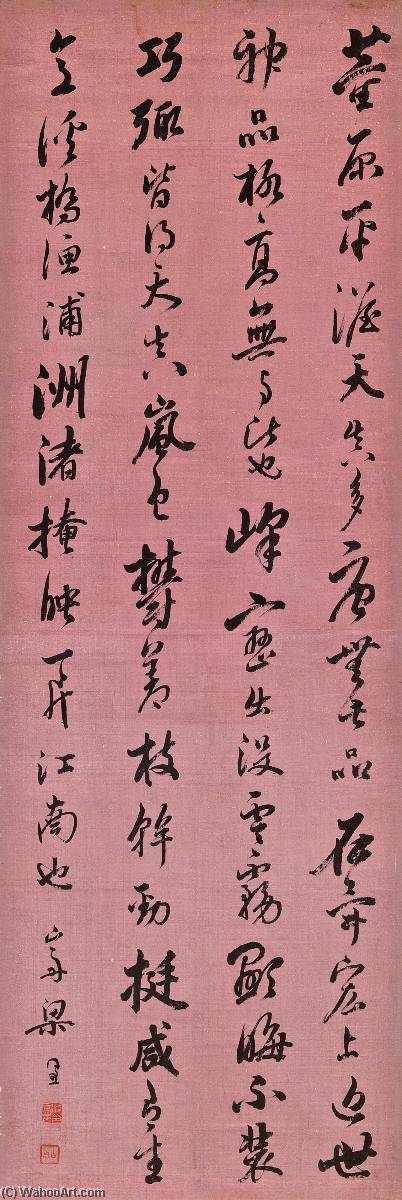 董原平淡天真多唐無此品在畢宏上近世
神品格高無與比也峰巒出沒雲霧顯晦不裝
巧趣皆得天真嵐色鬱蒼枝幹勁挺咸有生
意溪橋漁浦洲渚掩映一片江南也 嵩梁
(C) WahooArt.com